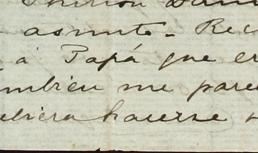 asunto. Rec
á Papá que er
mbien me pare
ubiera hacerse